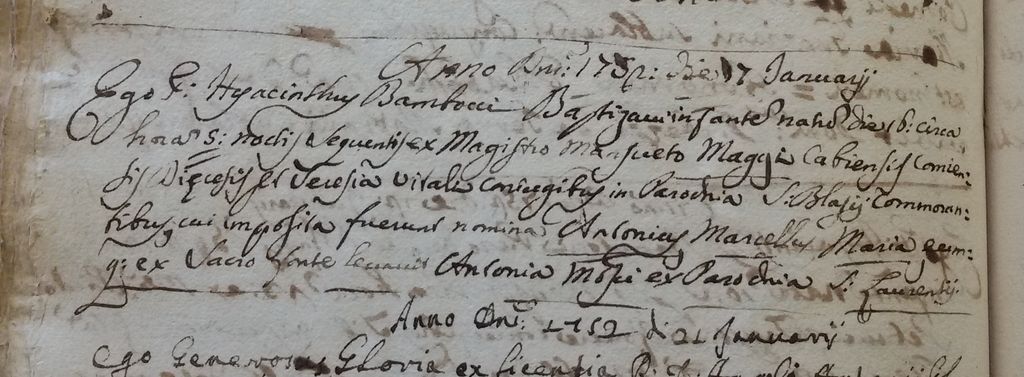 Anno Dni: 1752: die 17 Januarij
Ego F: Hyacinthus Bambocci Baptizavi infante nato die 16: circa
hora 5: noctis sequentis ex Magistro Mansueto Maggi Cabiensis Comen:
sis Diecesis et Teresia Vitali coniugibus in Parochia S: Blasij Commoran:
tibus, cui imposita fuerunt nomina Antonius Marcellus Maria eum:
q: ex Sacro fonte levavit Antonia Mosi ex Parochia S: Laurentij
Anno Dni: 1752 di 21 Januarij
Ego Generosus Gloria ex licentia